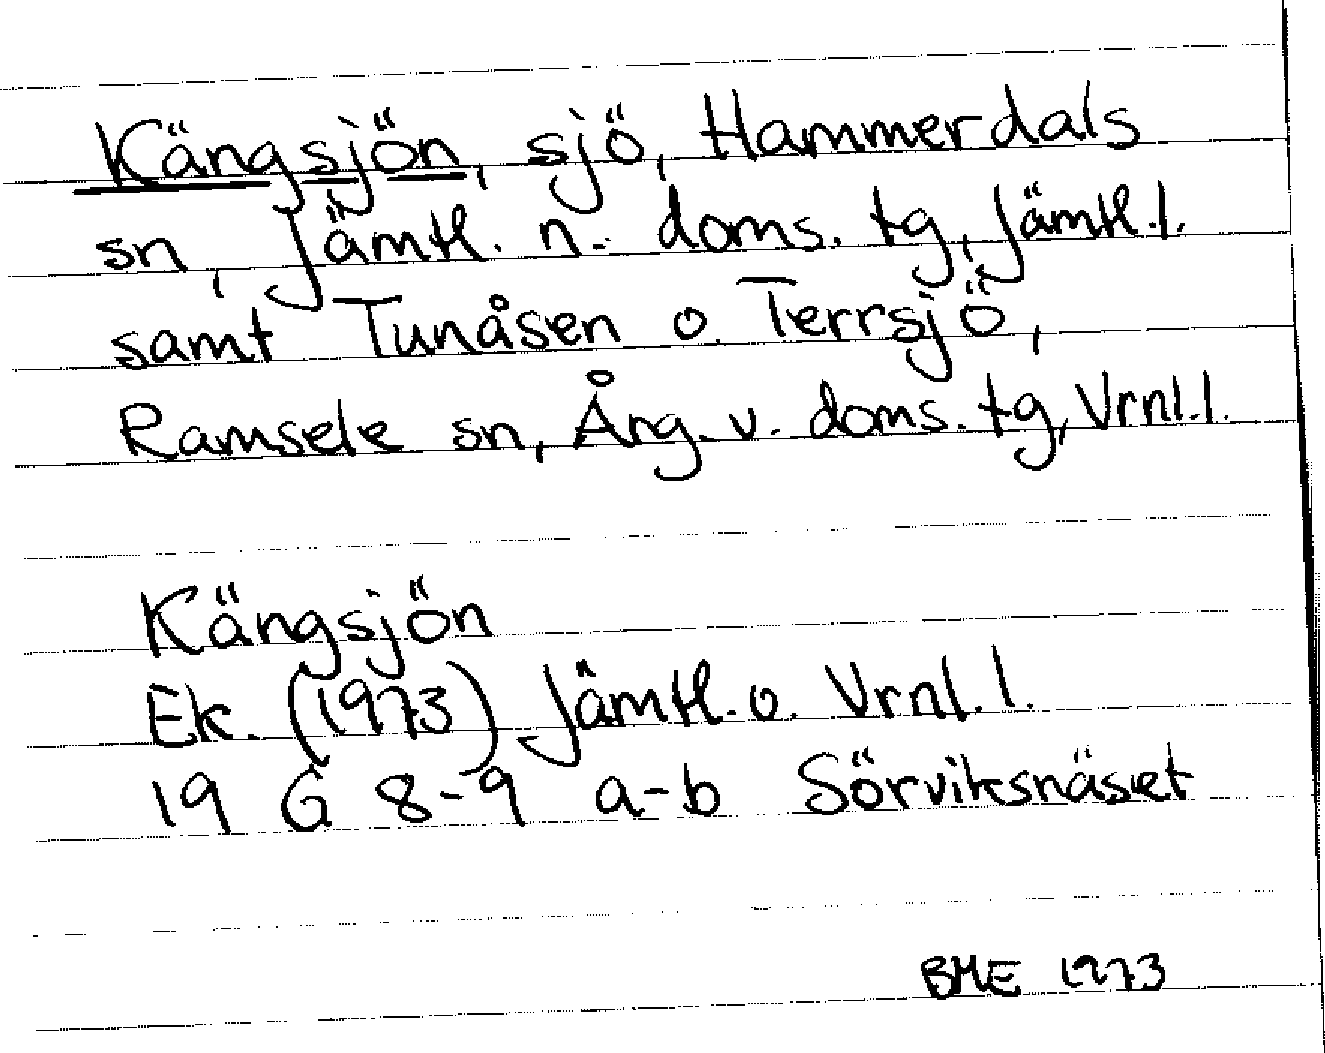 Kängsjön, sjö, Hammerdals
sn, Jämtl. n. doms. tg, Jämtl.l.
samt Tunåsen o. Terrsjö,
Ramsele sn, Ång. v. doms. tg, Vrnl.l.
Kängsjön
Ek. (1973) Jämtl. o. Vrnl. l.
19 G 8-9 a-b Sörviksnäset
BME 1973